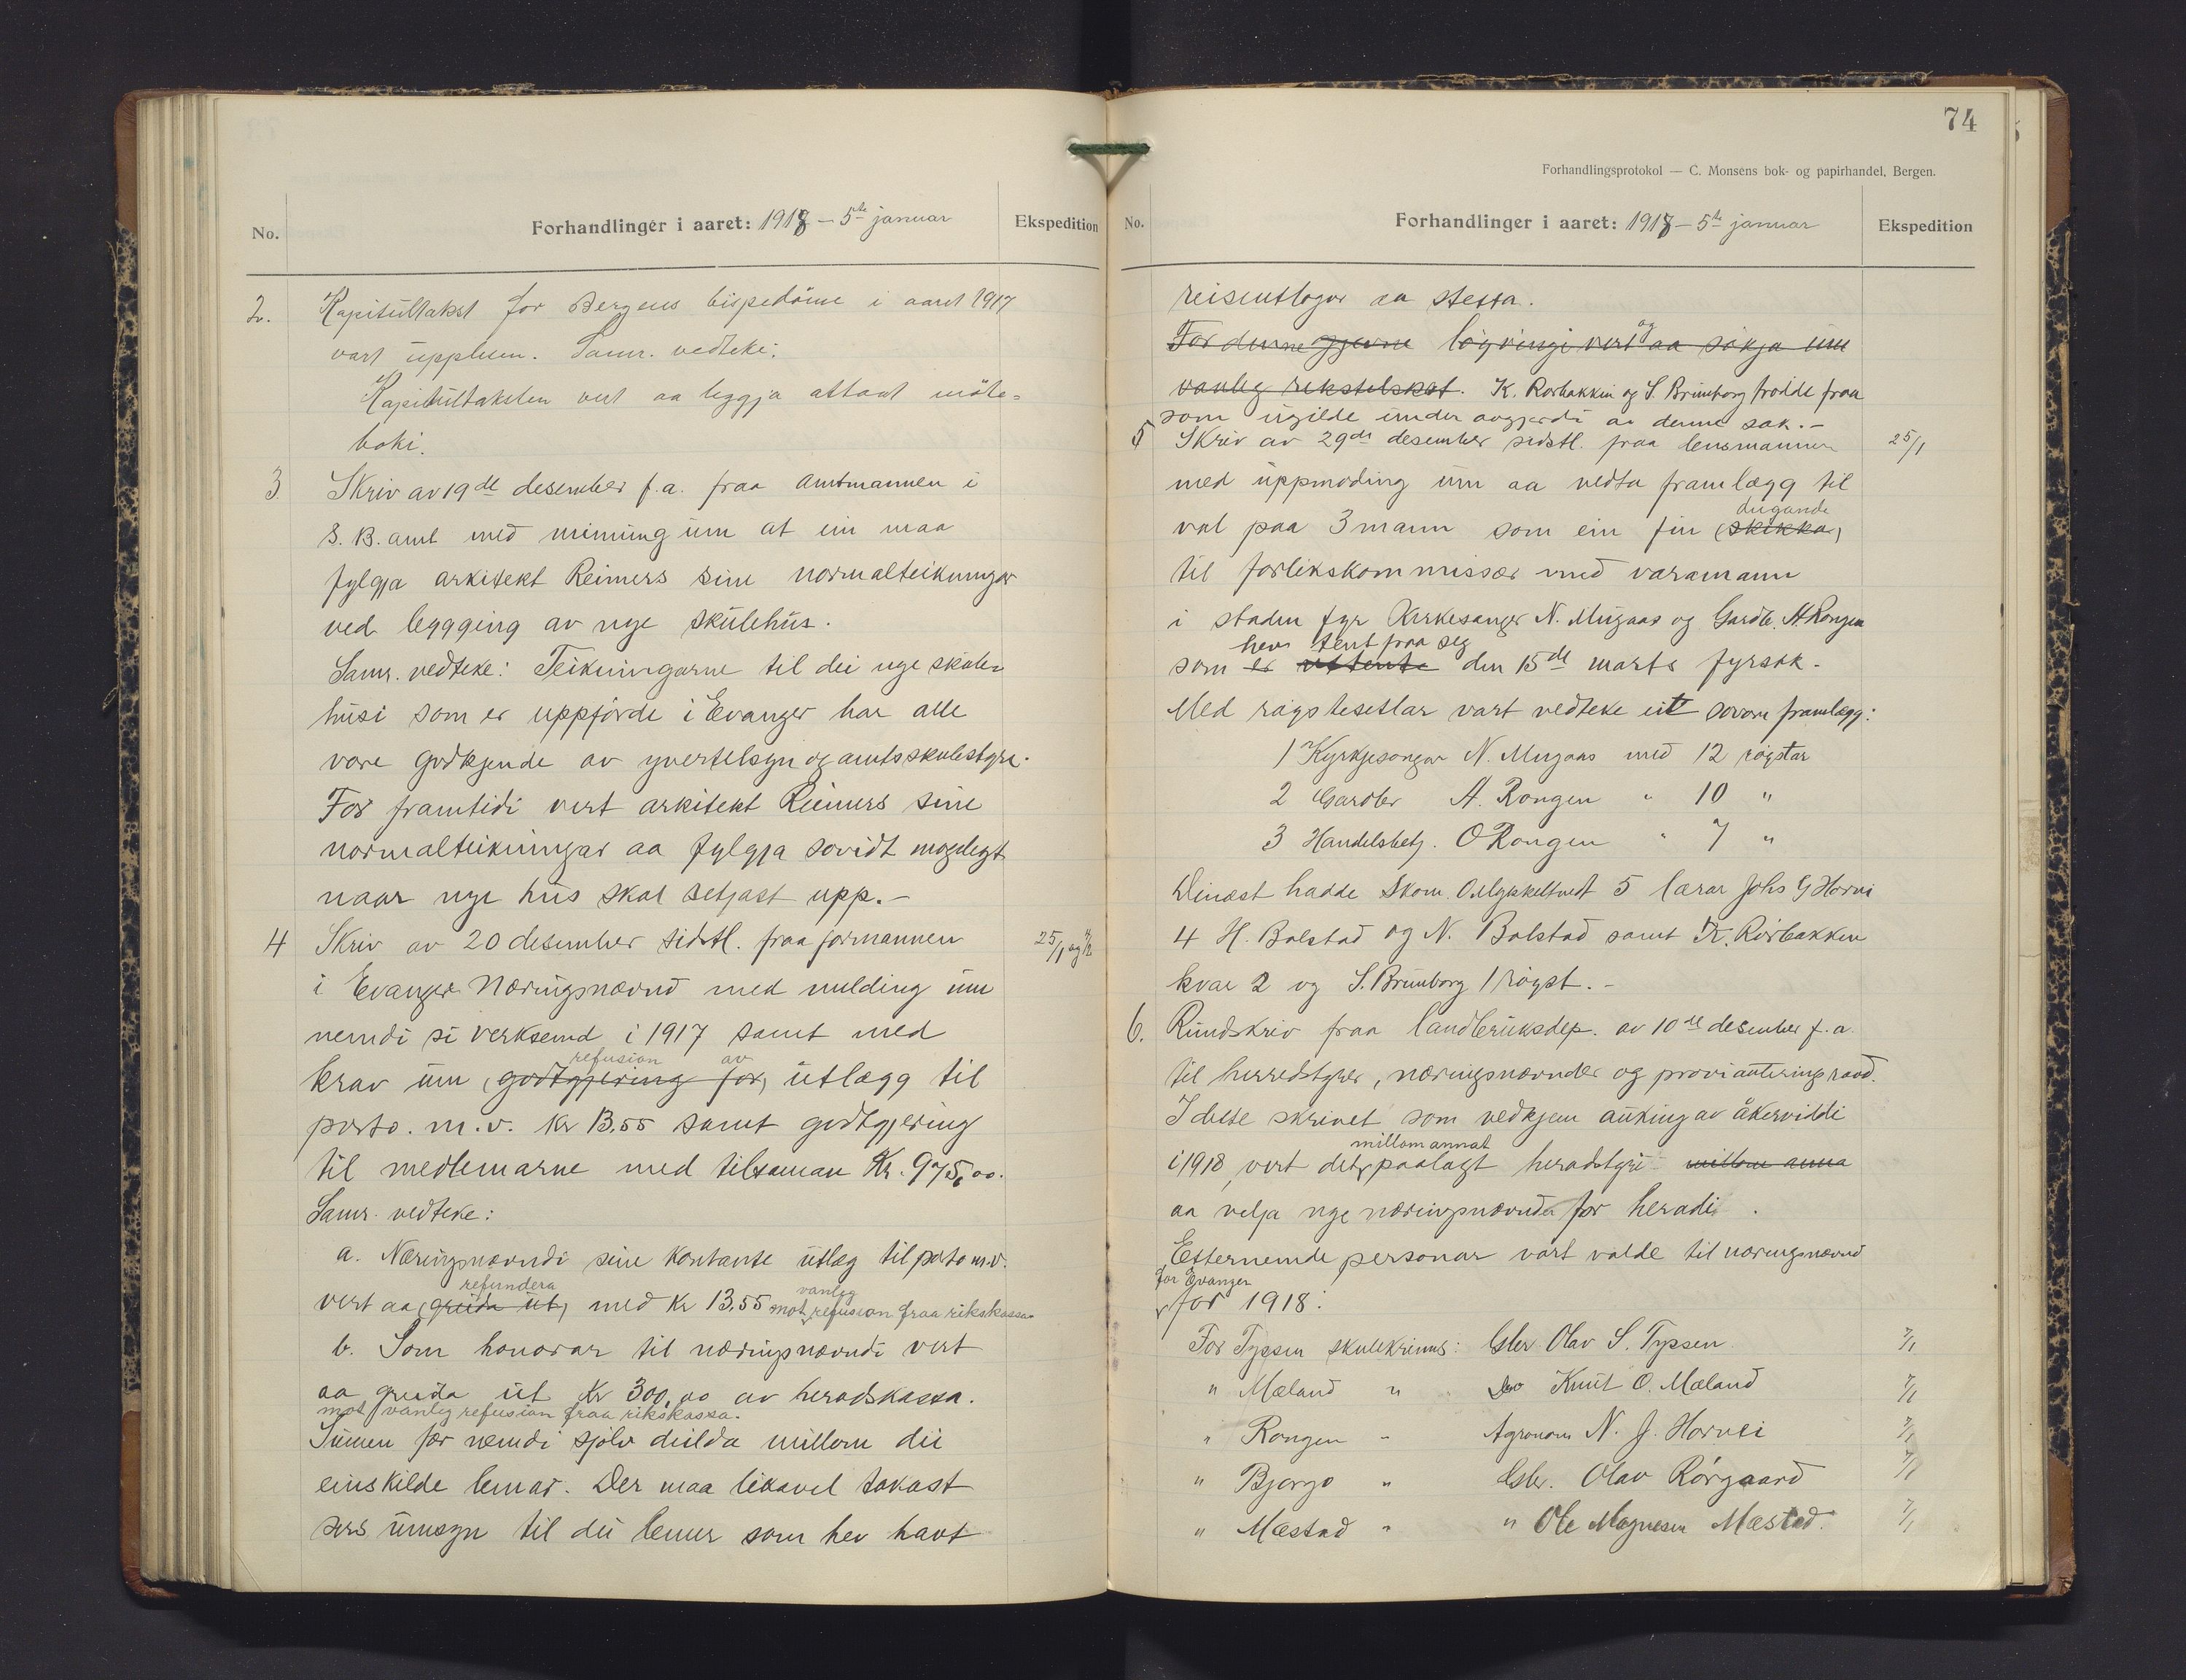 No.
Forhandlinger i aaret: 1918 – 5te januar
Ekspedition
2. Kapitultakst for Bergens bispedöme i aaret 1917
vart upplesen. Samr. vedteke:
Kapitultaksten vert aa leggja attaat möte=
boki.
3. Skriv av 19de desember f.a. fraa amtmannen i
S. B. amt med minning um at ein maa
fylgja arkitekt Reimers sine normalteikningar
ved bygging av nye skulehus.
Samr. vedteke: Teikningarne til dei nye skule=
husi som er uppførde i Evanger har alle
vore godkjende av yvertilsyn og amtsskulestyre.
For framtidi vert arkitekt Reimers sine
normalteikningar aa fylgja sovidt mogelegt
naar nye hus skal setjast upp.–
4 Skriv av 20 desember sidstl. fraa formannen 25/1 og
i Evanger Næringsnævnd med melding um
nemdi si verksemd i 1917 samt med
refusion av
krav um (godtgjering for) utlægg til
porto. m.v. kr 13,55 samt godtgjering
til medlemarne med tilsaman Kr. 975,00.
Samr. vedteke:
a. Næringsnævndi sine kontante utlæg til porto m.v.
refundera vanleg
vert aa (greida ut) med kr 13,55 mot refusion fraa rikskassa
b. Som honorar til næringsnævndi vert
aa greida ut kr 300,00 av heradskassa.
mot vanleg refusion fraa rikskassa.
Sumen fær nemdi sjølv deilda millom dei
einskilde lemar. Der maa likavel takast
sers umsyn til dei lemer som hev havt
74
Forhandlingsprotokol — C. Monsens bok- og papirhandel, Bergen.
No.
Forhandlinger i aaret: 1918 – 5te januar
Ekspedition
reiseutlogor aa stetta.
og
For denne gjevne løyvingi vert aa søkja um
vanleg rikstilskot. K. Rørbakken og S. Brunborg trødde fraa
som ugilde under avgjerdi av denne sak.–
5 Skriv av 29de desember sidstl. fraa lensmannen 25/1
med uppmoding um aa vedta framlægg til
dugande
val paa 3 mann som ein fin (skikka)
til forlikskommissær med varamann
i staden fyr Kirkesanger N. Mugaas og Gardbr. A. Rongen
hev tent fraa seg
som er uttente den 15de marts fyrstk.
Med røystesetlar vart vedteke eit sovore framlegg:
1 Kyrkjesongar N. Mugaas med 12 røystar
2 Gardbr A. Rongen " 10 "
3 Handelsbetj. O Rongen " 7 "
Dinæst hadde Skom. O. Mykkeltvedt 5 lærar Johs G Horvei
4 H. Bolstad og N. Bolstad samt K. Rørbakken
kvar 2 og S. Brunborg 1 røyst.–
6. Rundskriv fraa landbruksdep. av 10de desember f.a.
til herredstyrer, næringsnævnder og provianteringsraad.
I dette skrivet som vedkjem auking av åkerviddi
millom annat
i 1918, vert det paalagt heradstyri millom anna
aa velja nye næringsnævnder for heradi.
Etternemde personar vart valde til næringsnævnd
for Evanger
for 1918:
For Tyssen skulekrins: Gbr. Olav S. Tyssen 7/1
" Mæland " Knut O. Mæland 7/1
" Rongen " Agronom N. J. Horvei 7/1
" Bjørgo " Gbr. Olav Rørgaard 7/1
" Mæstad " " Ole Magnesen Mæstad. 7/1